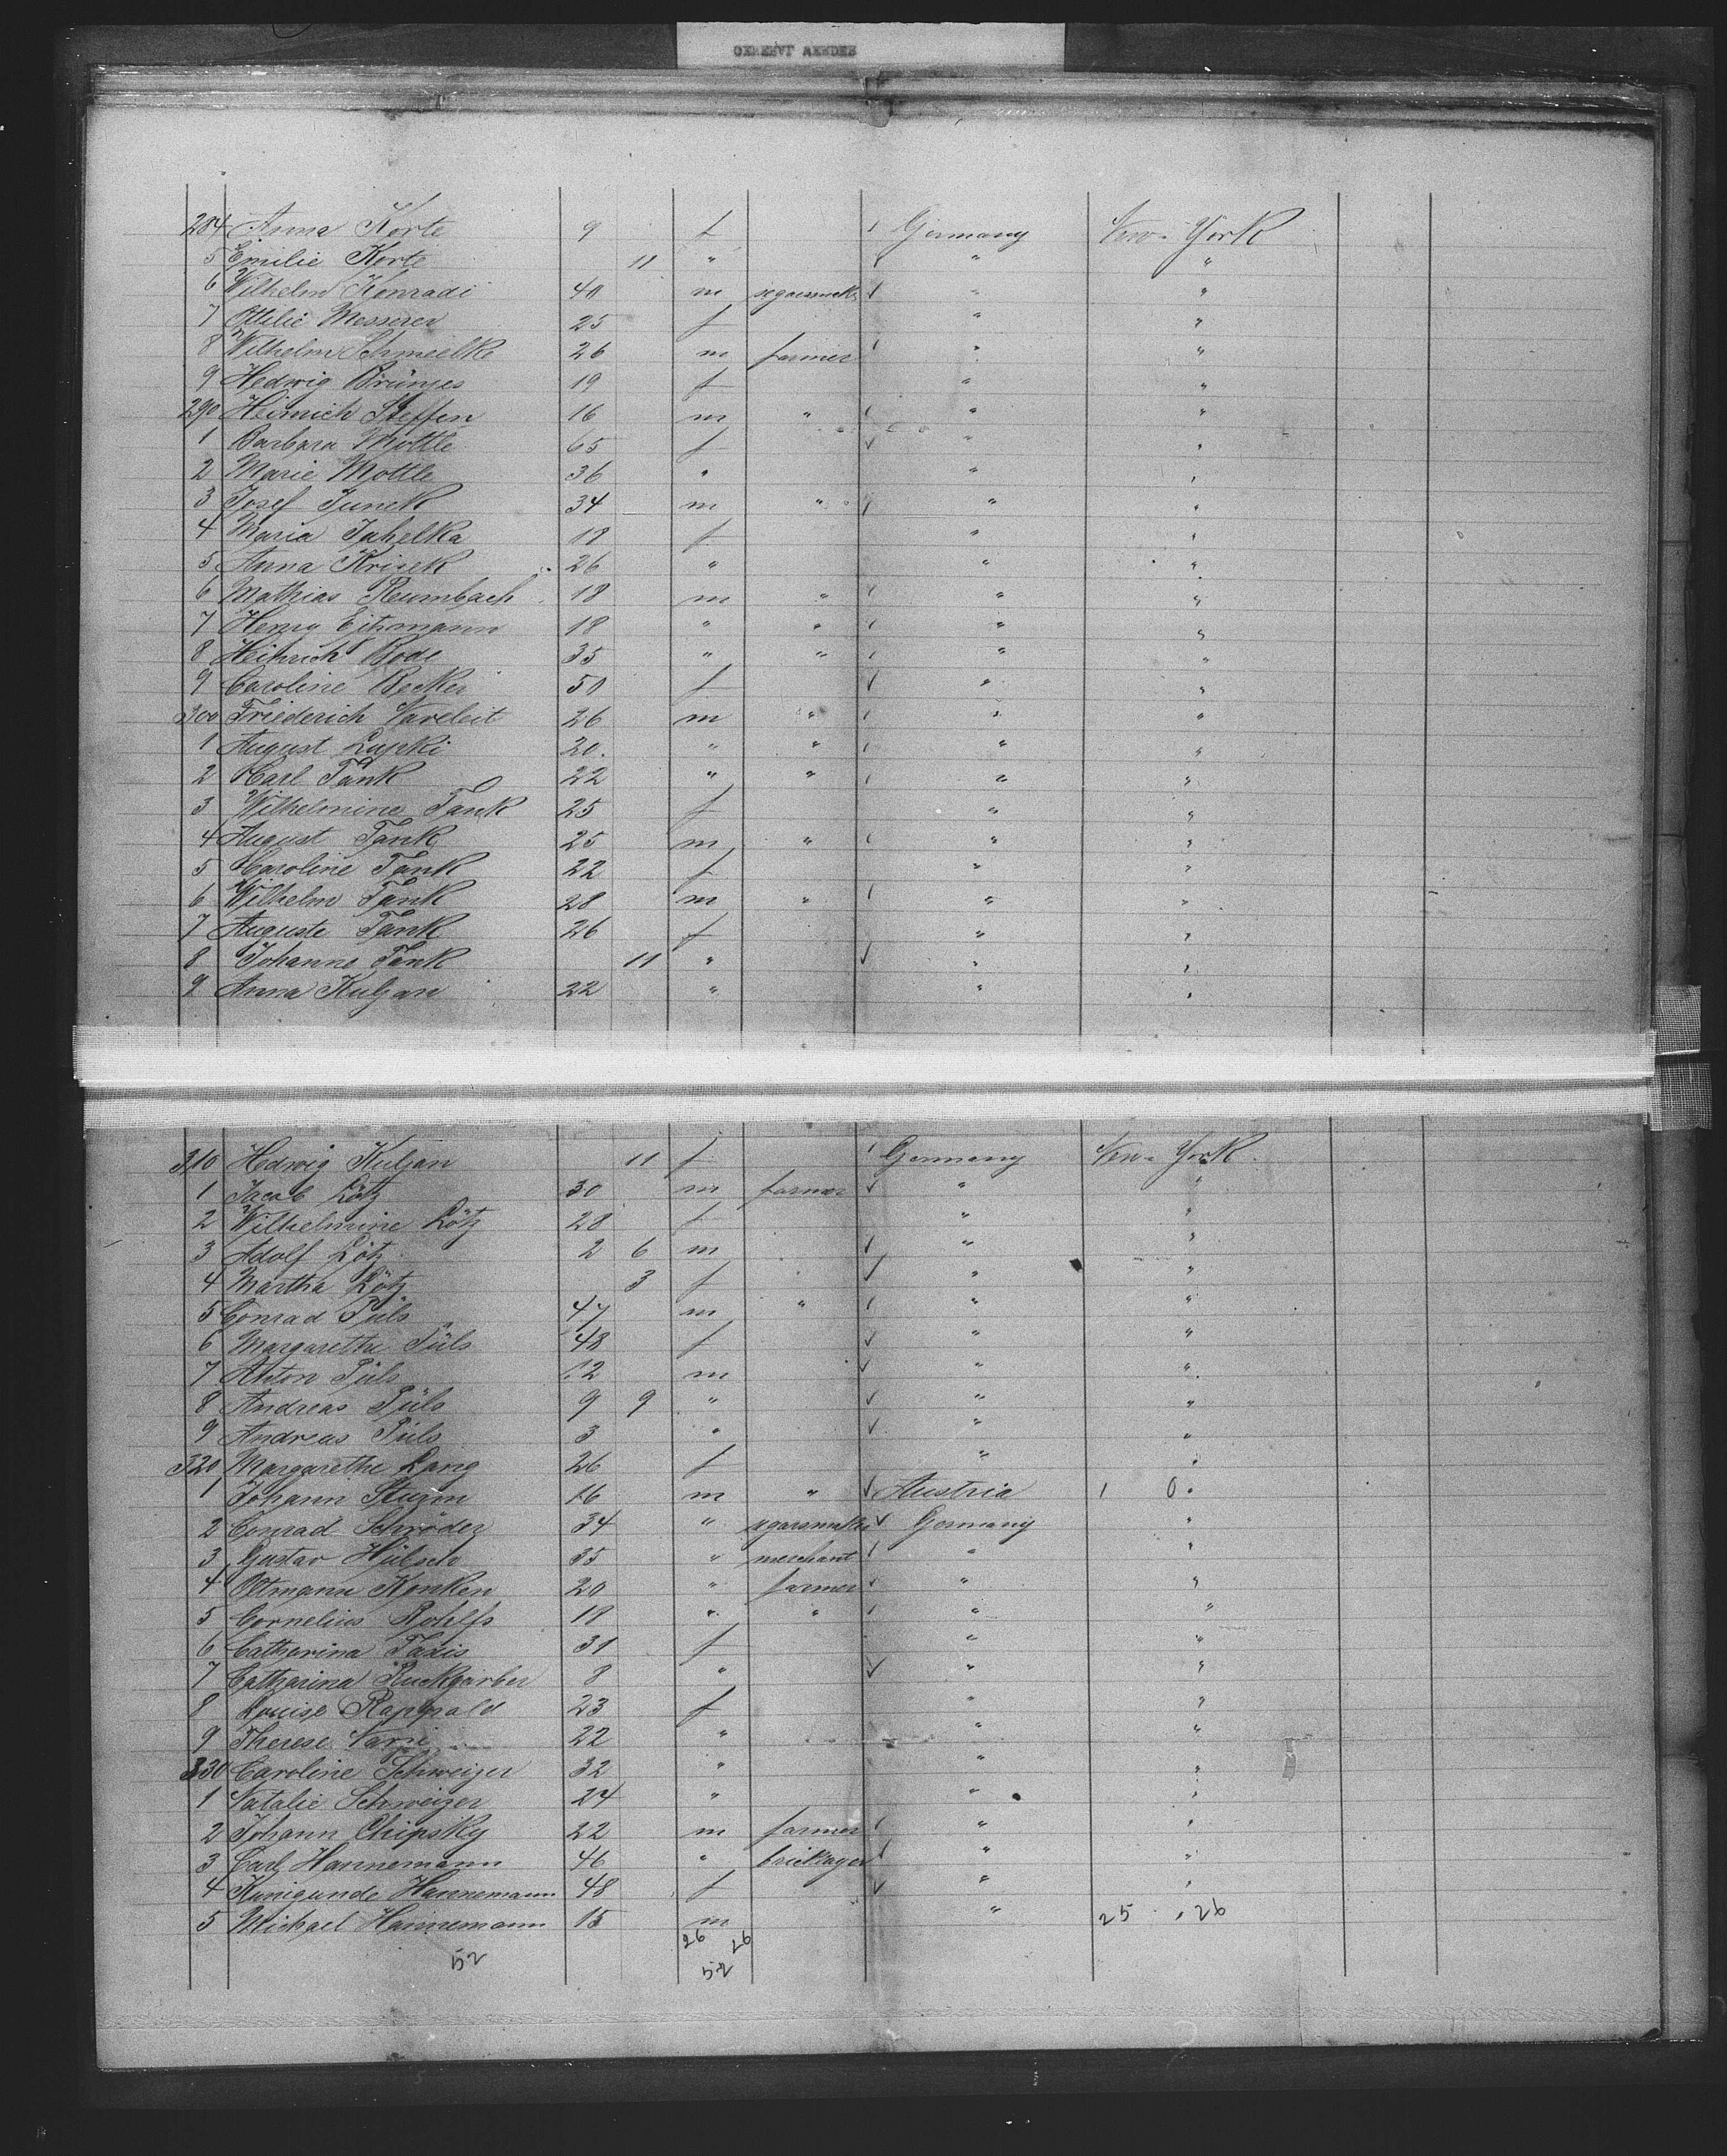 284 Anna Korte 9 f Germany New-York
5 Emilie Korte 11 " " "
6 Wilhelm Konradi 40 m segarsmaker " "
7 Ottilie Messerer 25 f " "
8 Wilhelm Schmielke 26 m farmer " "
9 Hedwig Brünjes 19 f " "
290 Heinrich Steffen 16 m " " "
1 Barbara Mottle 65 f " "
2 Marie Mottle 36 " " "
3 Josef Junek 34 m " " "
4 Maria Jahelka 18 f " "
5 Anna Krisek 26 " " "
6 Mathias Reumbach 18 m " " "
7 Henry Eitzmann 18 " " " "
8 Heinrich Bode 35 " " " "
9 Caroline Becker 50 f " "
300 Friederich Vareleit 26 m " " "
1 August Lupki 20 " " " "
2 Carl Tank 22 " " " "
3 Wilhelmine Tank 25 f " "
4 August Tank 25 m " " "
5 Caroline Tank 22 f " "
6 Wilhelm Tank 28 m " " "
7 Auguste Tank 26 f " "
8 Johanne Tank 11 " " "
9 Anna Kuljan 22 " " "
310 Hedwig Kuljan 11 f Germany New-York
1 Jacob Lötz 30 m farmer " "
2 Wilhelmine Lötz 28 f " "
3 Adolf Lötz 2 6 m " "
4 Martha Lötz 3 f " "
5 Conrad Püls 47 m " " "
6 Margarethe Püls 48 f " "
7 Anton Püls 12 m " "
8 Andreas Püls 9 9 " " "
9 Andreas Püls 3 " " "
320 Margarethe Lang 26 f " "
1 Johann Sturm 16 m " Austria 1 0 "
2 Conrad Schröder 34 " segarsmaker Germany "
3 Gustav Hübsch 35 " merchant " "
4 Oltmann Konken 20 " farmer " "
5 Cornelius Rohlfs 18 " " " "
6 Catharina Taxis 31 f " "
7 Catharina Ruckgarber 8 " " "
8 Louise Rappald 23 f " "
9 Therese 22 " " "
330 Caroline Schweizer 32 " " "
1 Natalie Schweizer 24 " " "
2 Johann Chipsky 22 m farmer " "
3 Carl Hannemann 46 " bricklayer " "
4 Kunigunde Hannemann 48 f " "
5 Michael Hannemann 15 m " 25 26
26 26
52 52